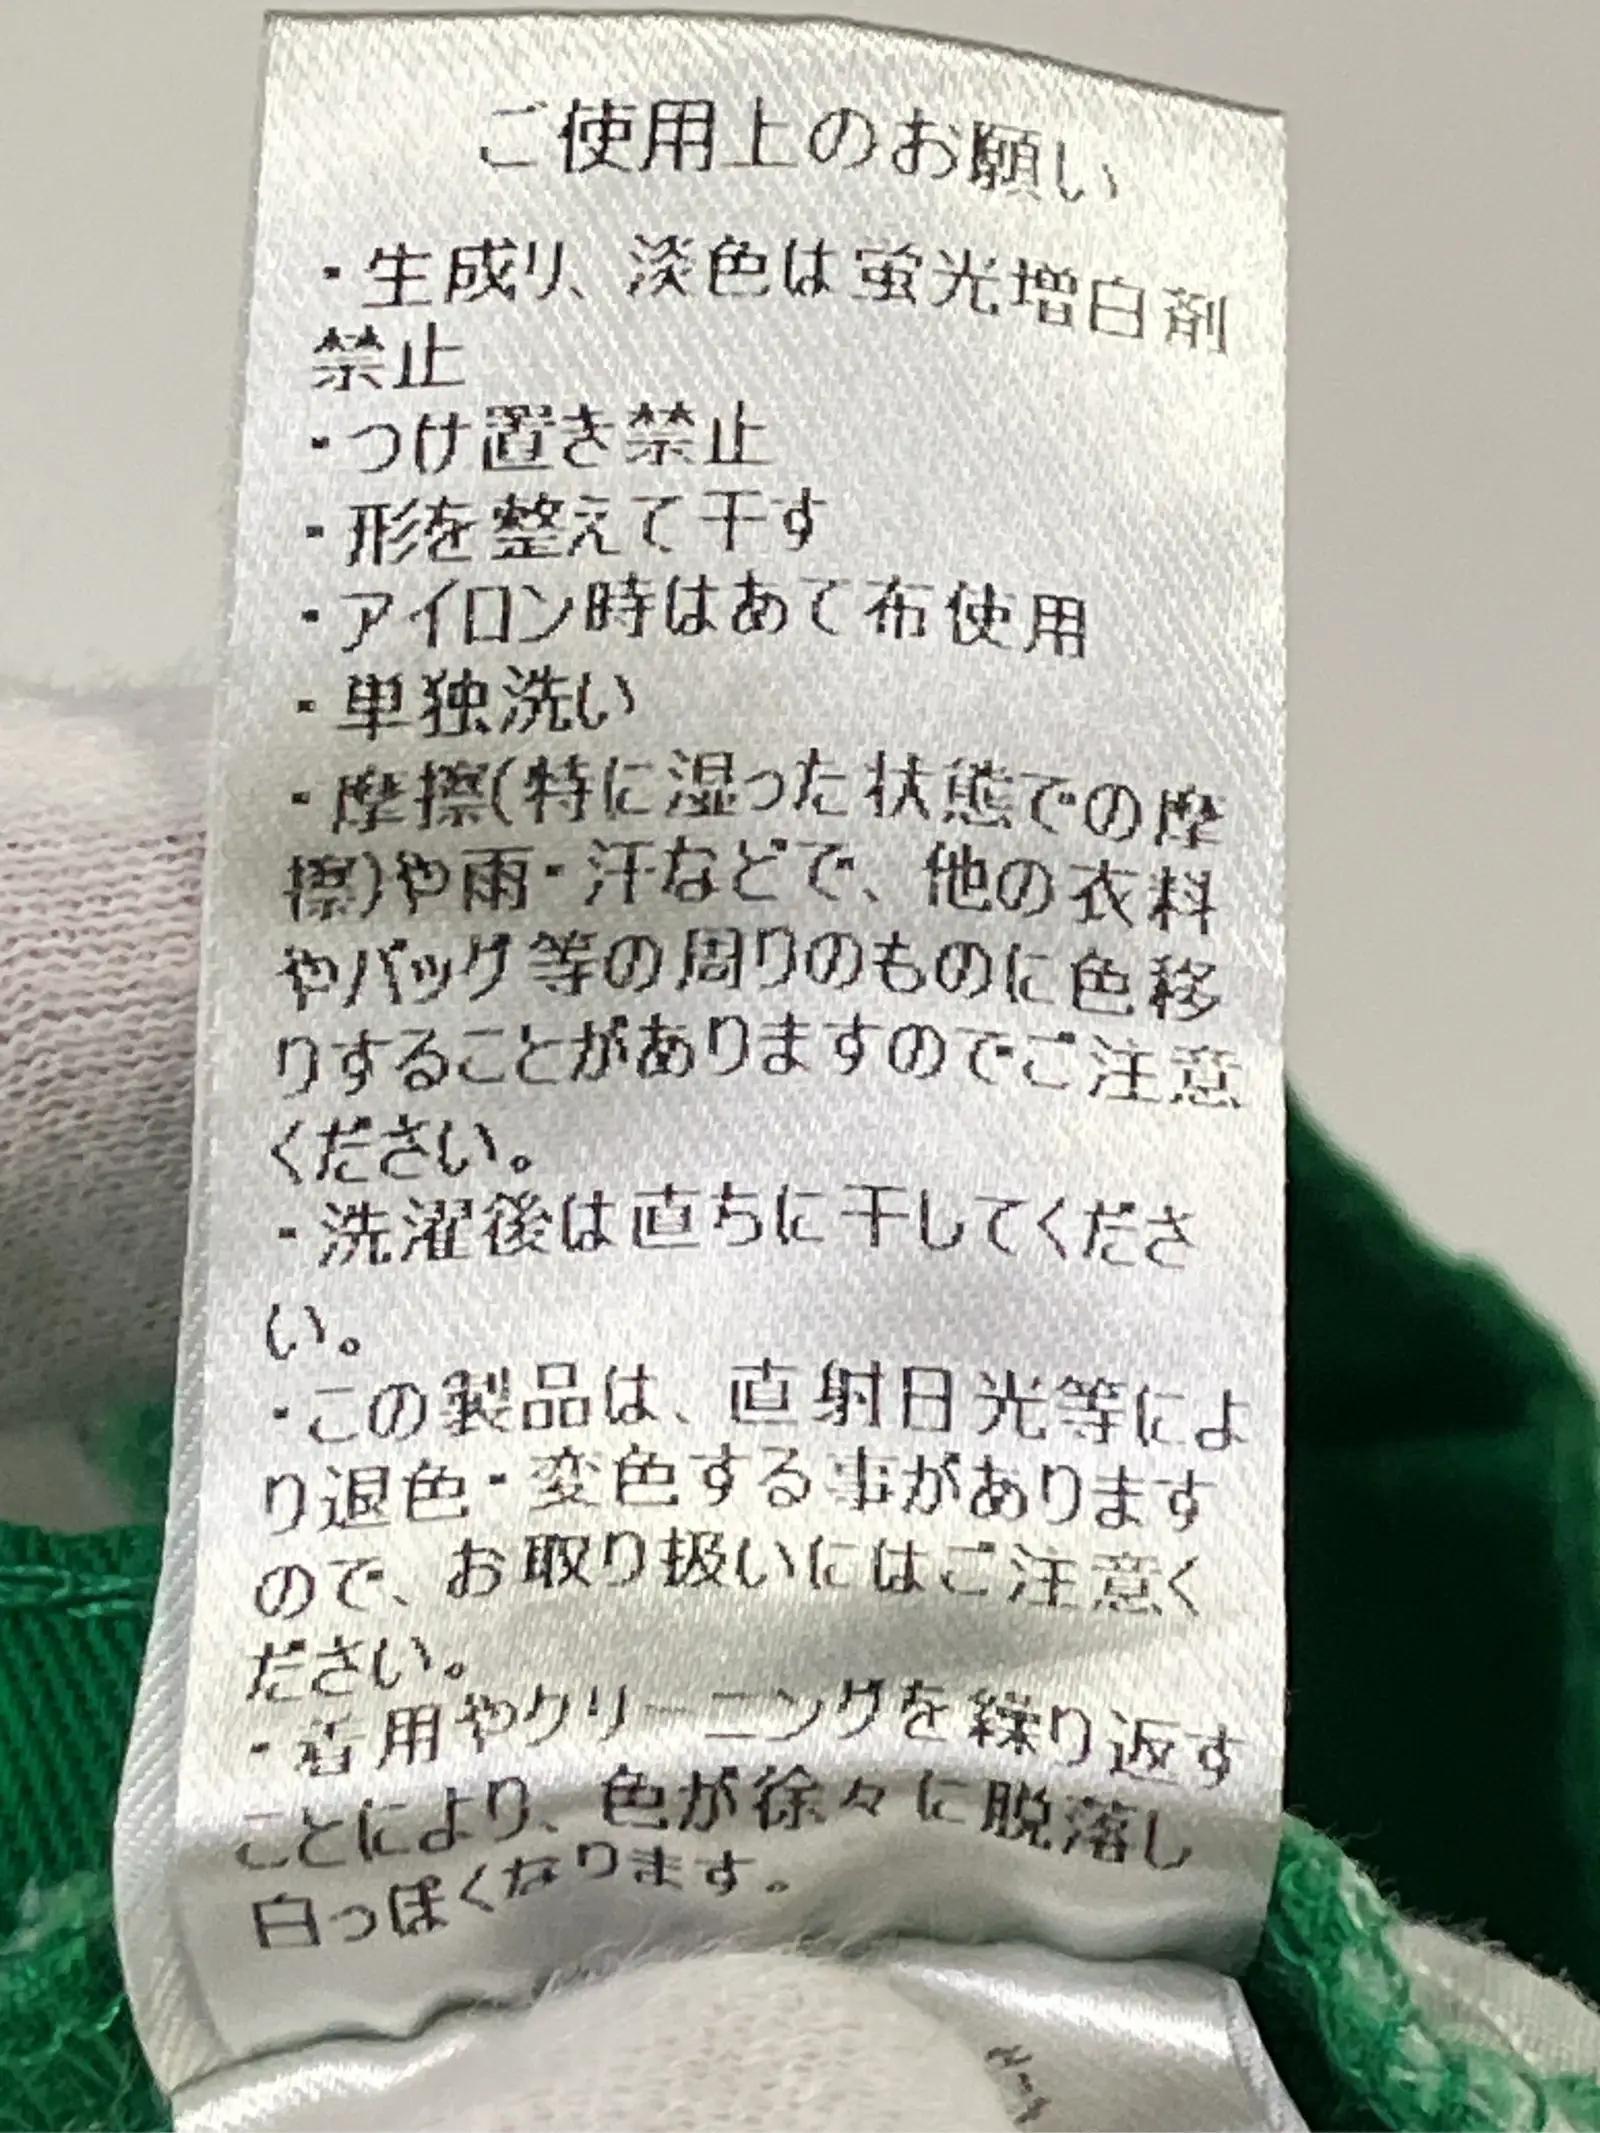 ご使用上のお願い
・生成り、淡色は蛍光増白剤
禁止
・つけ置き禁止
・形を整えて干す
・アイロン時はあて布使用
・単独洗い
・摩擦(特に湿った状態での摩
擦)や雨・汗などで、他の衣料
やバッグ等の周りのものに色移
りすることがありますのでご注意
ください。
・洗濯後は直ちに干してくださ
い。
・この製品は、直射日光等によ
り退色・変色する事があります
ので、お取り扱いにはご注意く
ださい。
・着用やクリーニングを繰り返す
ことにより、色が徐々に脱落し
白っぽくなります。